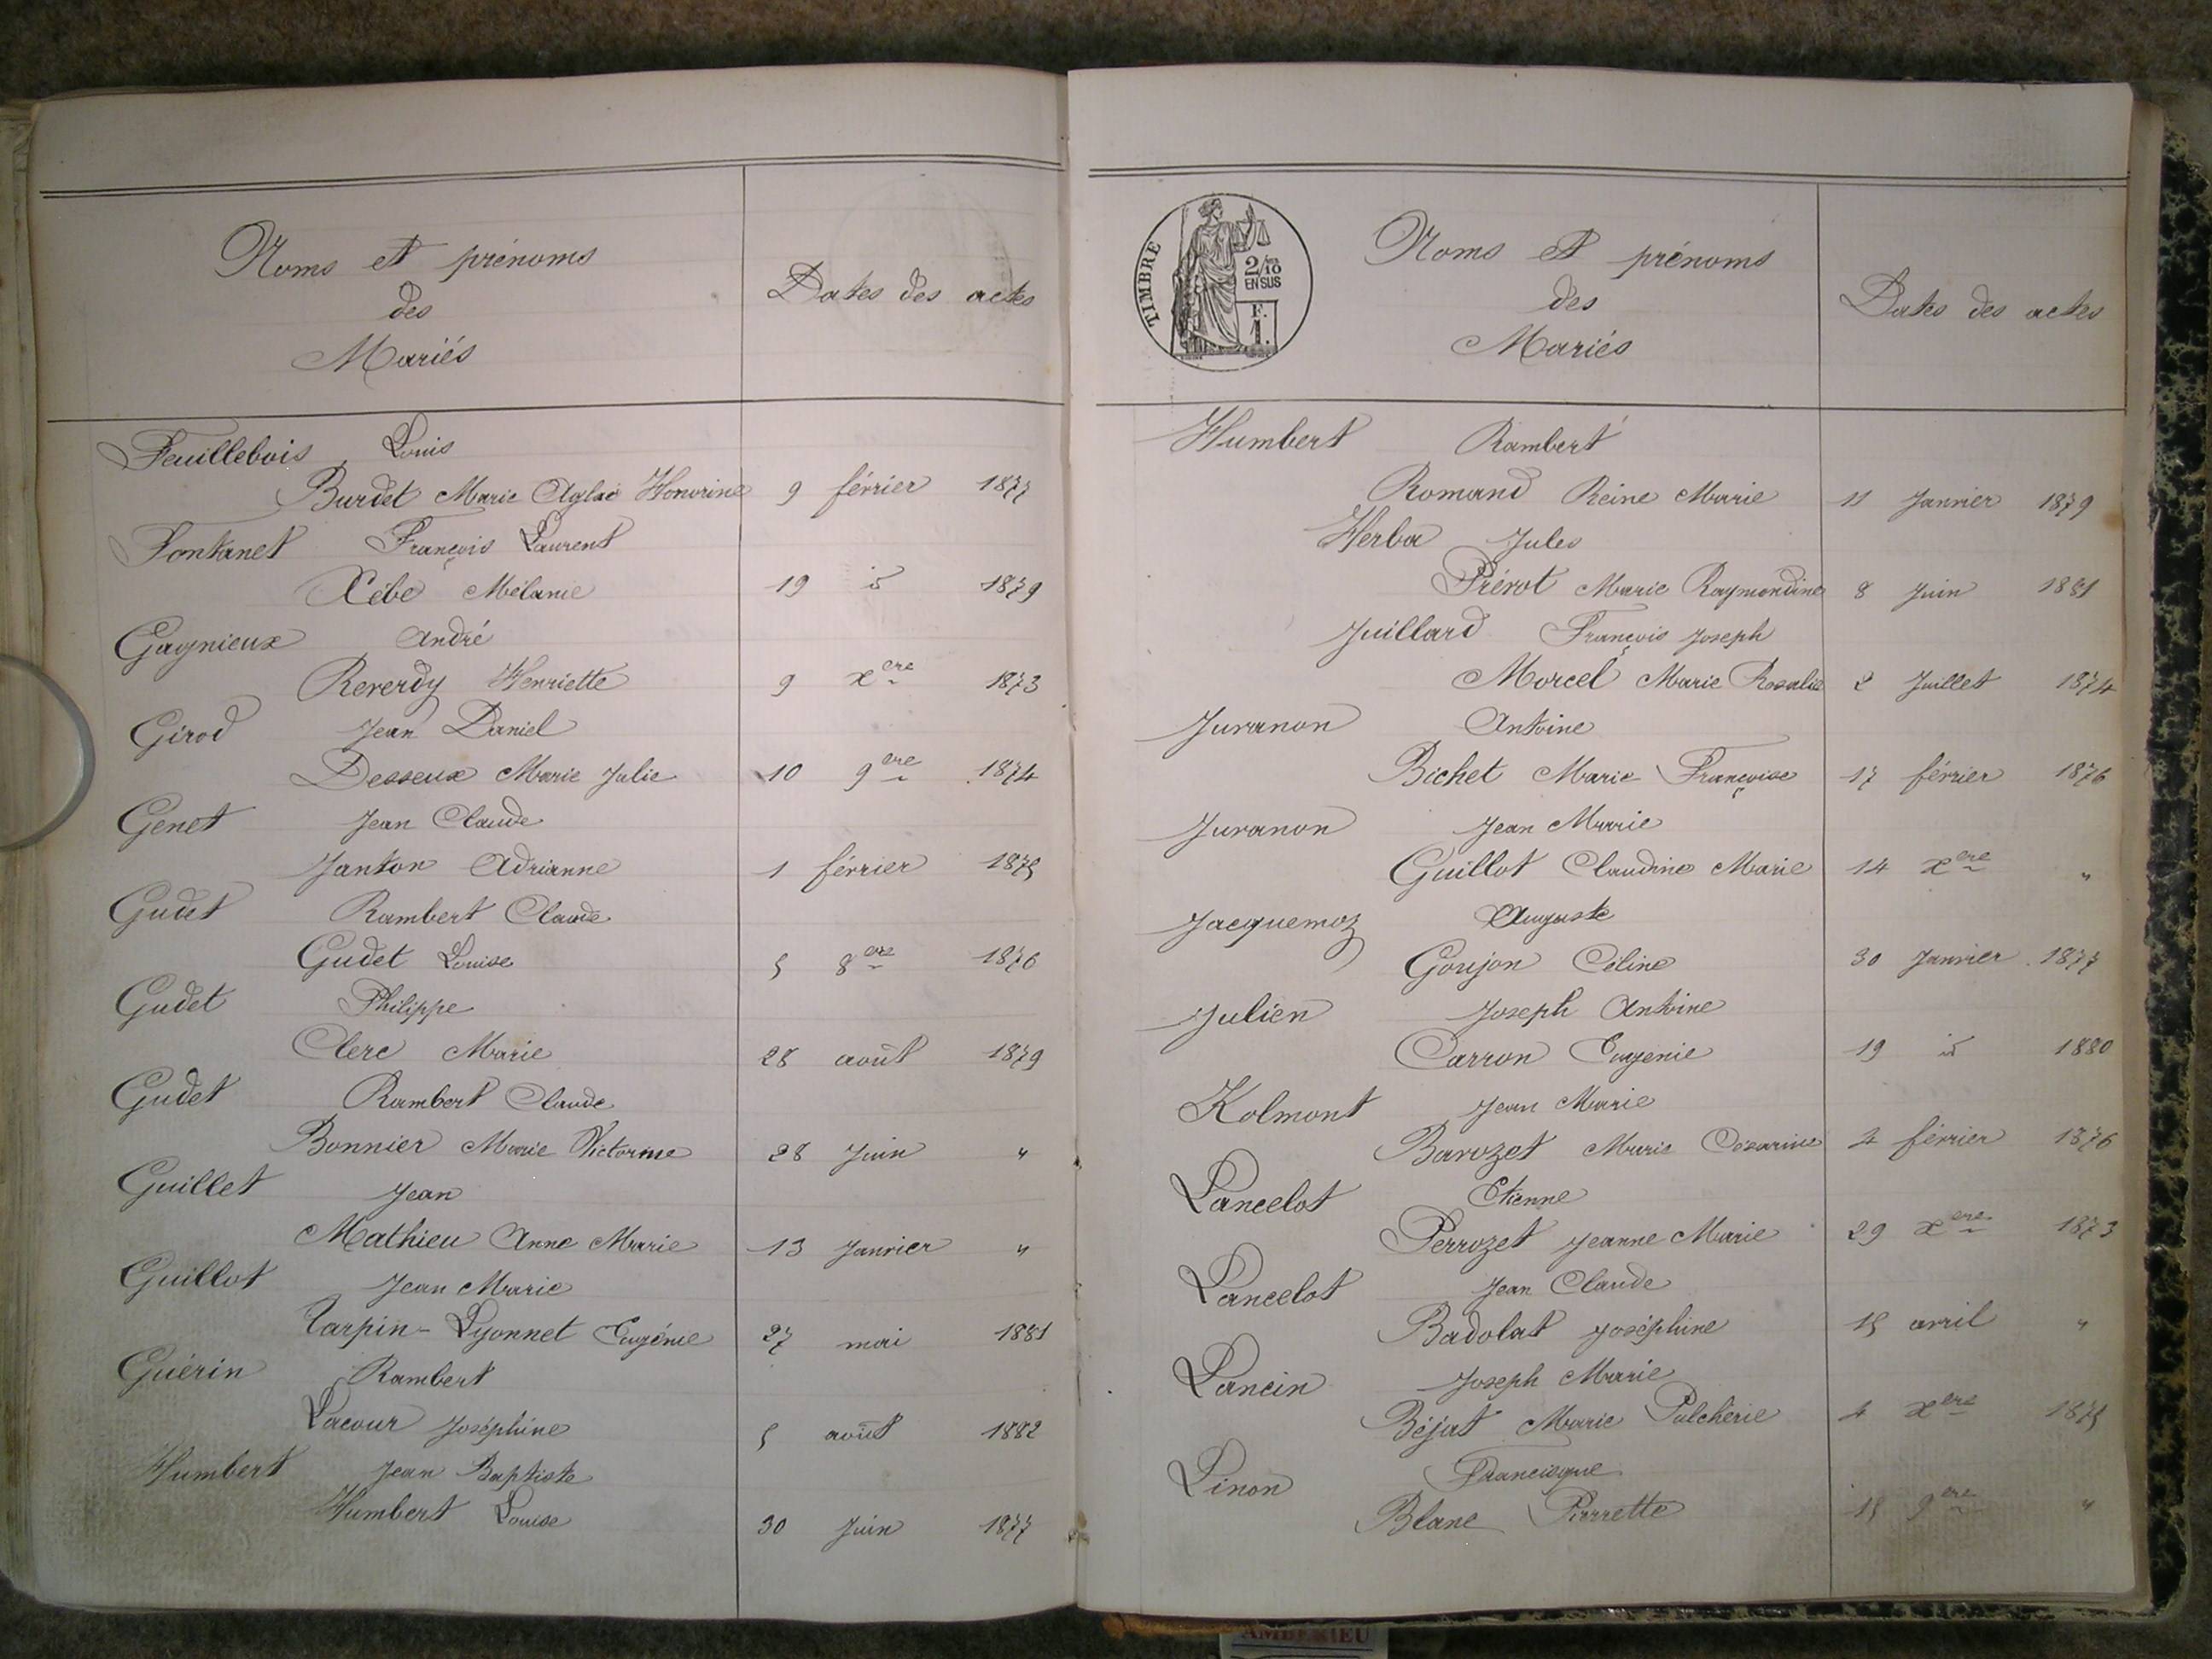 Noms et prénoms
des
Mariés
Dates des actes
Feuillebois Louis
Burdet Marie Aglaé Honorine 9 février 1877
Fontanet François Laurent
Xébe Mélanie 19 id 1879
Gagnieux André
Reverdy Henriette 9 xere 1873
Girod Jean Daniel
Desseux Marie Julie 10 9ere 1874
Genet Jean Claude
Janton Adrianne 1 février 1875
Gudet Rambert Claude
Gudet Louise 5 8ere 1876
Gudet Philippe
Clerc Marie 28 août 1879
Gudet Rambert Claude
Bonnier Marie Victorine 28 Juin "
Guillet Jean
Mathieu Anne Marie 13 Janvier "
Guillot Jean Marie
Tarpin-Lyonnet Eugénie 27 mai 1881
Guérin Rambert
Lacour Joséphine 5 août 1882
Humbert Jean Baptiste
Humbert Louise 30 Juin 1877
TIMBRE
2/10
EN SUS
F.
1.
Noms et prénoms
des
Mariés
Dates des actes
Humbert Rambert
Romand Reine Marie 11 Janvier 1879
Herba Jules
Prérot Marie Raymondine 8 Juin 1881
Juillard François Joseph
Morcel Marie Rosalie 2 Juillet 1874
Juranon Antoine
Bichet Marie Françoise 17 février 1876
Juranon Jean Marie
Guillot Claudine Marie 14 xere "
Jacquemoz Auguste
Goujon Céline 30 Janvier 1877
Julien Joseph Antoine
Carron Eugenie 19 id 1880
Kolmont Jean Marie
Barozet Marie Césarine 2 février 1876
Lancelot Etienne
Perrozet Jeanne Marie 29 xere 1873
Lancelot Jean Claude
Badolat Joséphine 15 avril "
Lancin Joseph Marie
Béjat Marie Pulchérie 4 xere 1875
Linon Francisque
Blanc Pierrette 15 9ere "
AMBERIEU